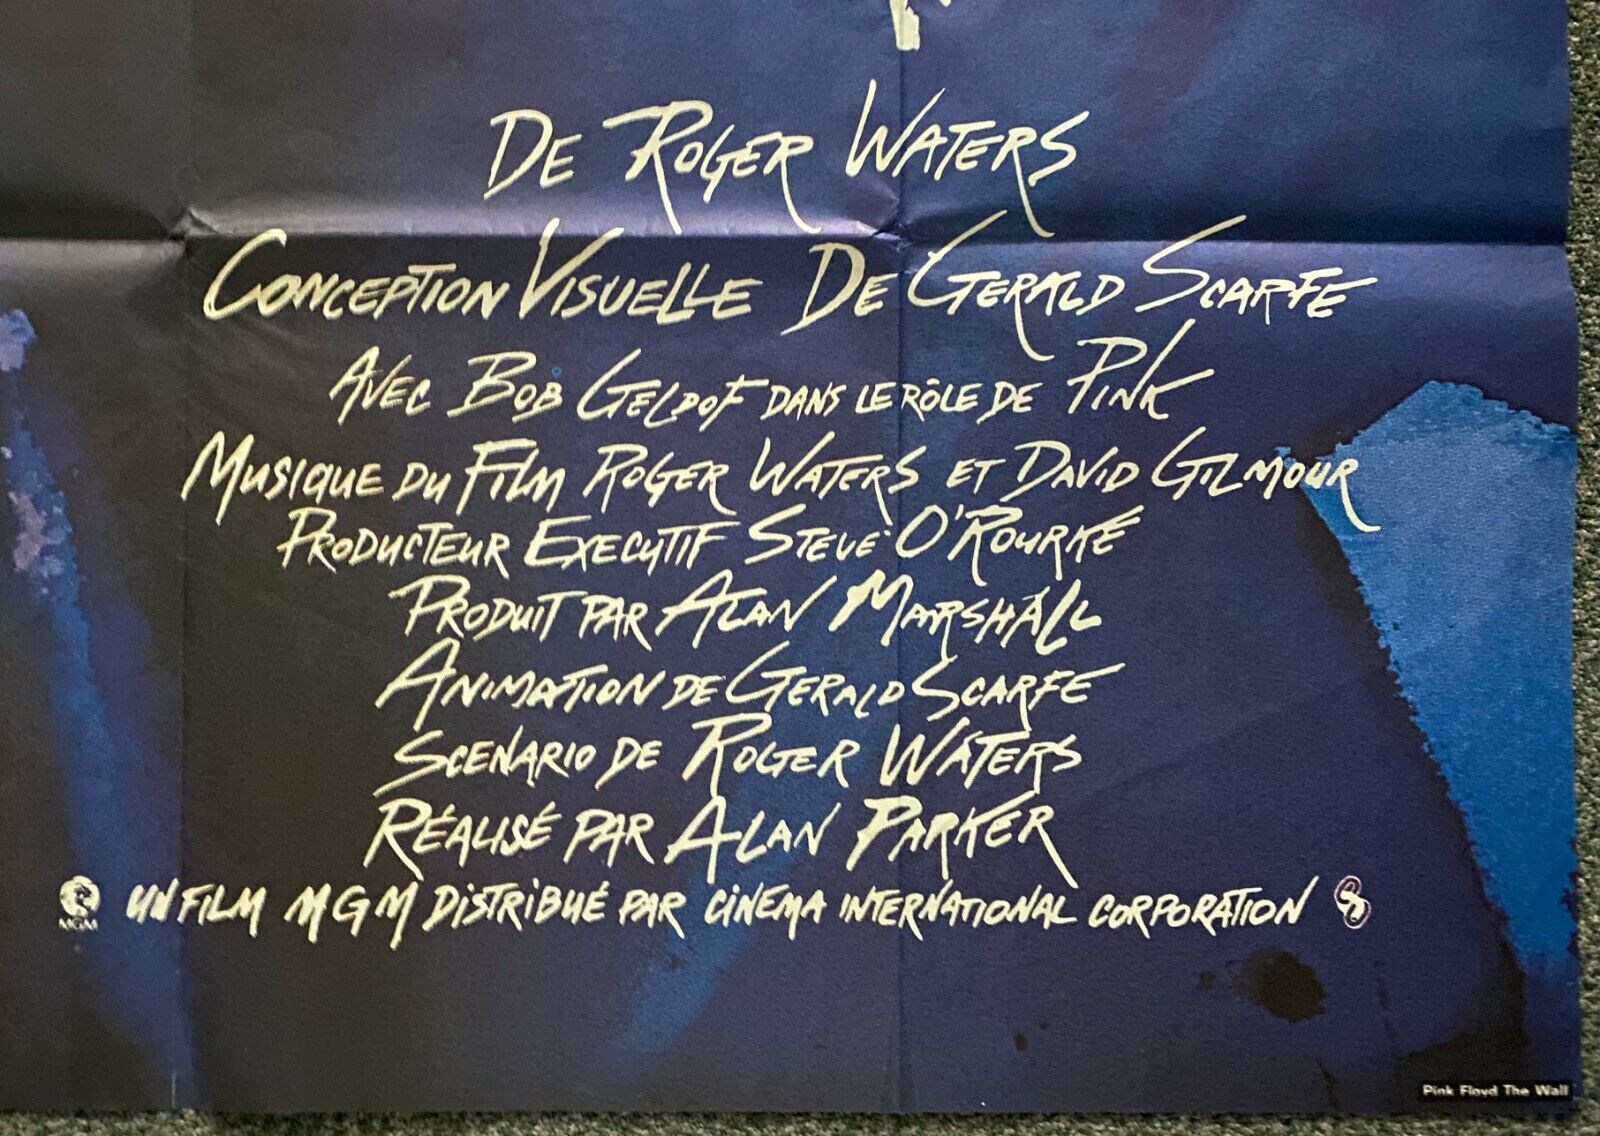 DE ROGER WATERS
CONCEPTION VISUELLE DE GERALD SCARFE
AVEC BOB GELDOF DANS LE RÔLE DE PINK
MUSIQUE DU FILM ROGER WATERS ET DAVID GILMOUR
PRODUCTEUR EXECUTIF STEVE O'ROURKE
PRODUIT PAR ALAN MARSHALL
ANIMATION DE GERALD SCARFE
SCENARIO DE ROGER WATERS
RÉALISÉ PAR ALAN PARKER
MGM UN FILM MGM DISTRIBUÉ PAR CINEMA INTERNATIONAL CORPORATION
Pink Floyd The Wall